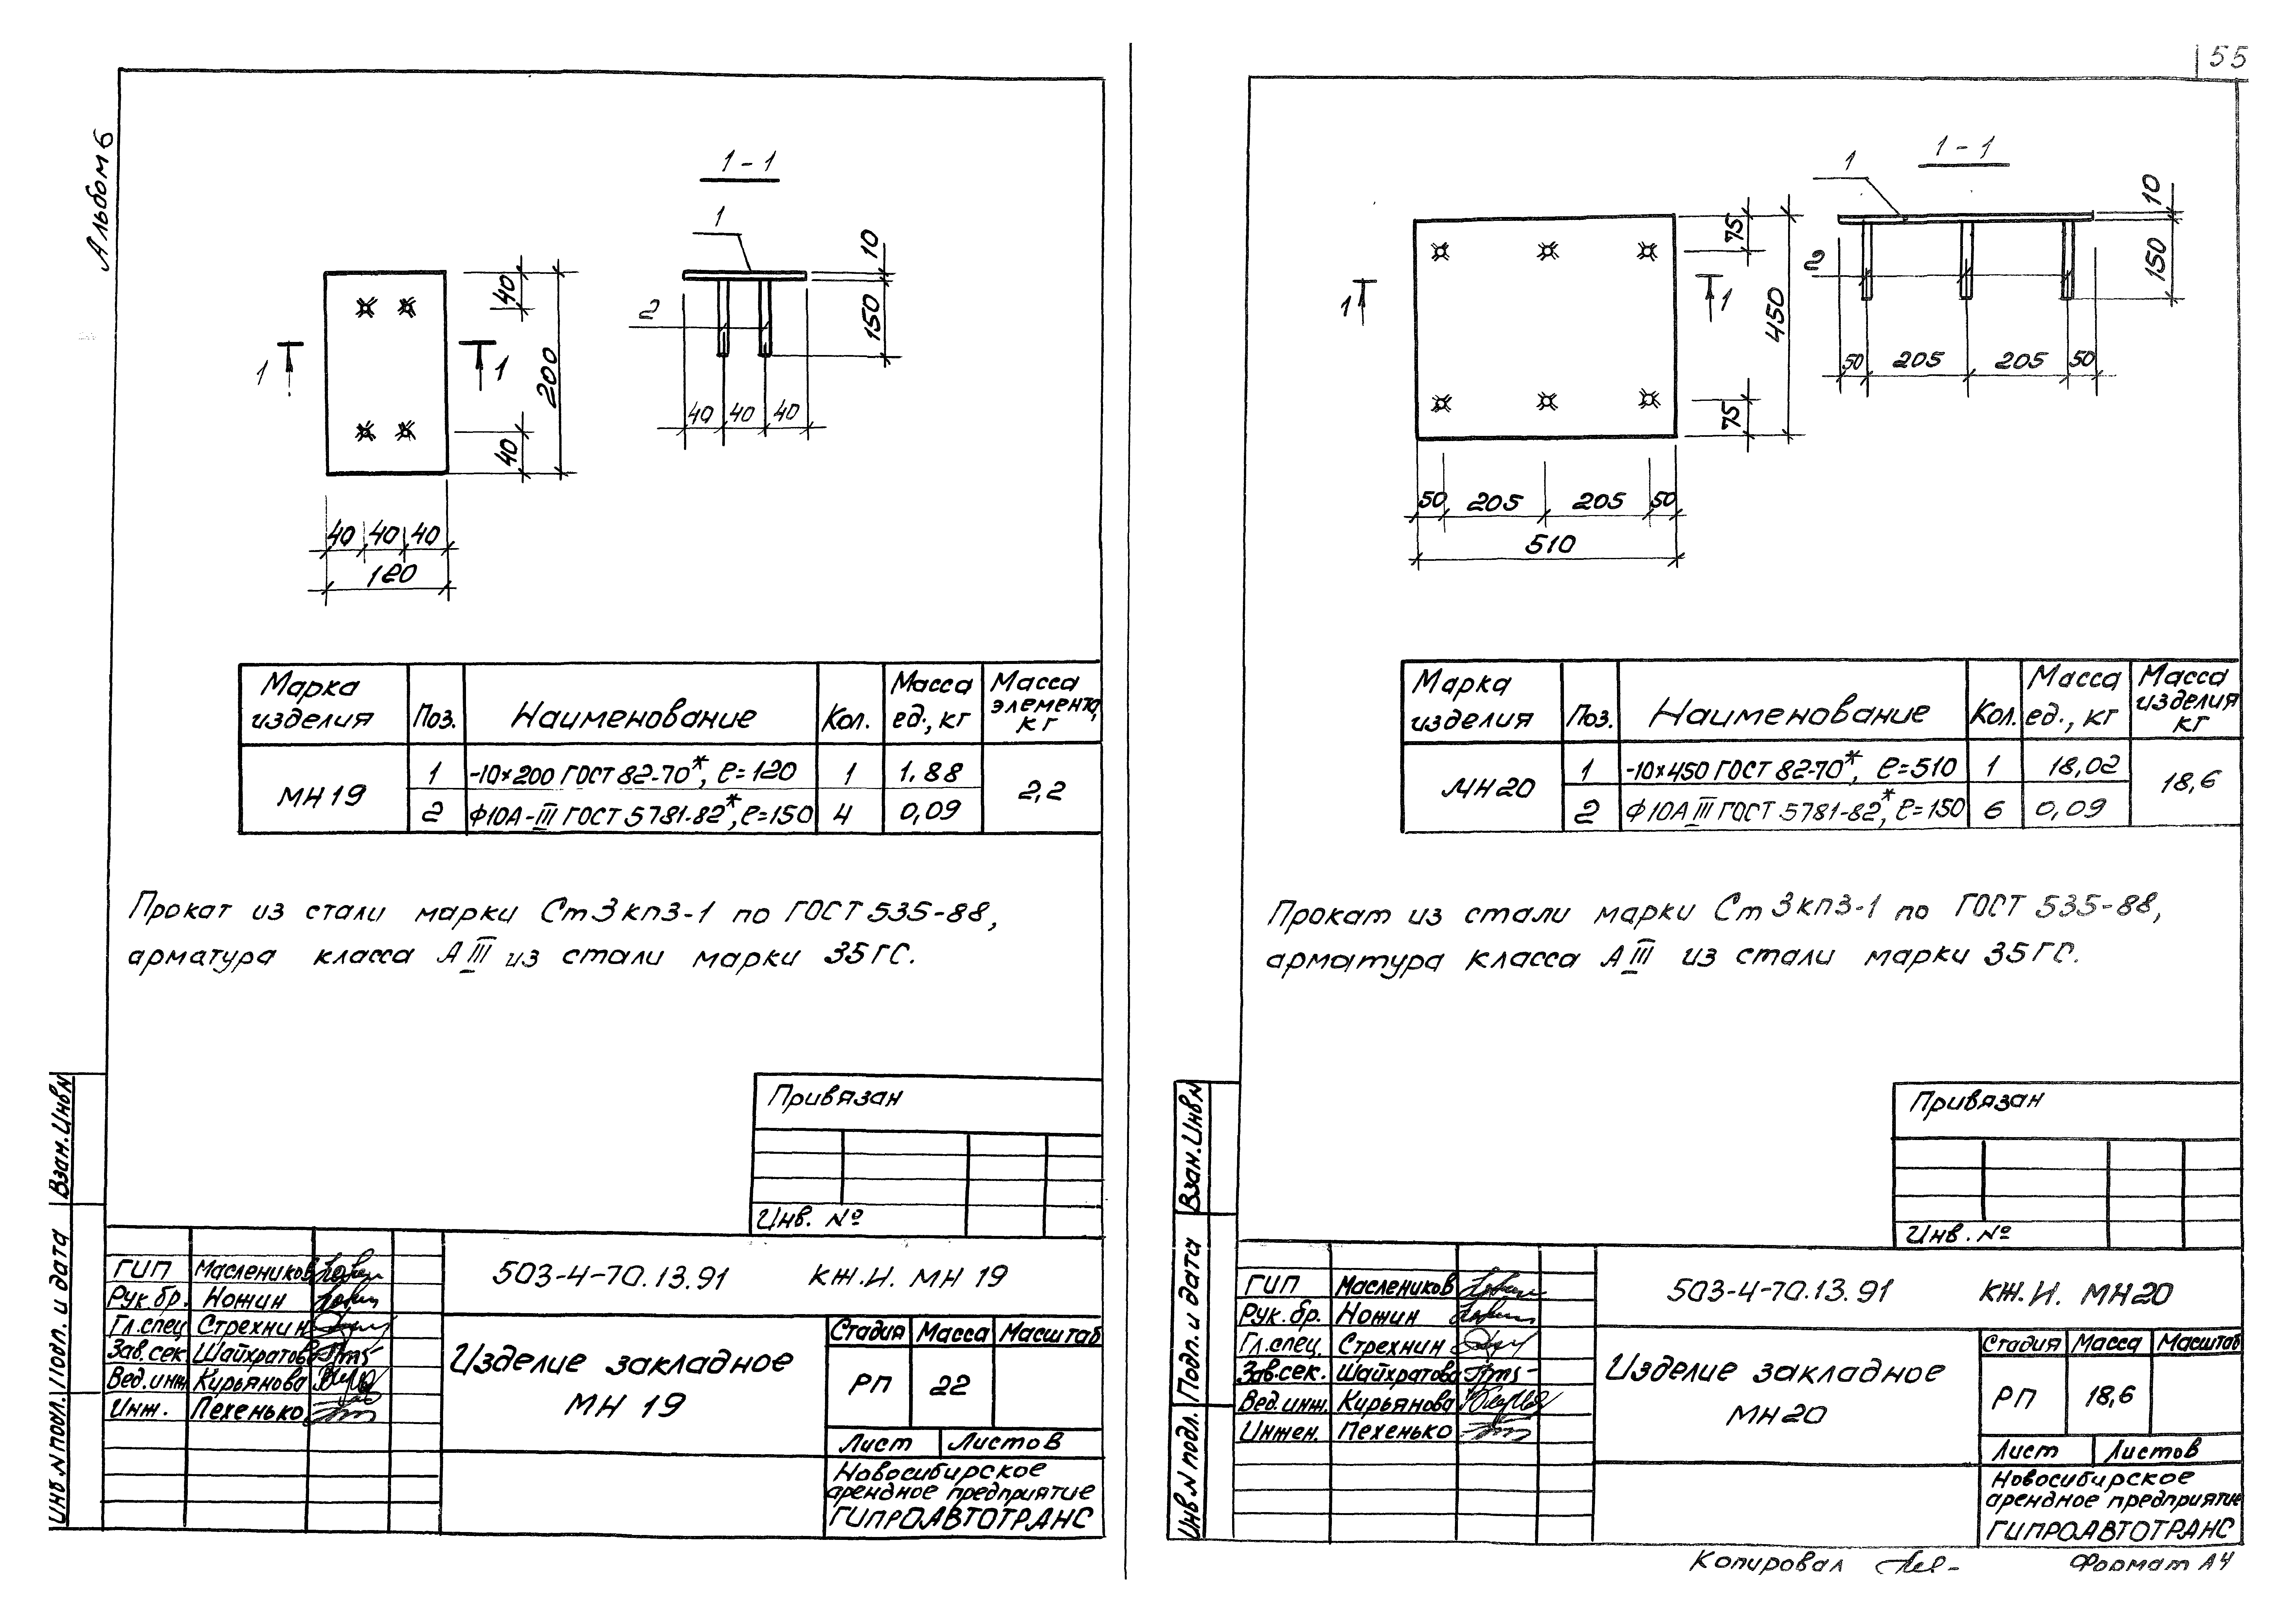 55
Альбом 6
1-1
1
2
10
150
40 40 40
1 1
40
200
40
40 40 40
120
Марка изделия Поз. Наименование Кол. Масса ед., кг Масса элемента, кг
МН 19 1 -10×200 ГОСТ 82-70*, ℓ=120 1 1.88 2,2
2 Ф10А-III ГОСТ 5781-82*, ℓ=150 4 0,09
Прокат из стали марки Ст3кп3-1 по ГОСТ 535-88,
арматура класса АIII из стали марки 35ГС.
Привязан
Инв. №
Взам. Инв N
Подп. и дата
Инв N подл.
ГИП Маслеников
Рук.бр. Ножин
Гл.спец Стрехнин
Зав.сек. Шайхратова
Вед.инж Кирьянова
Инж. Пехенько
503-4-70.13.91 КЖ.И. МН 19
Изделие закладное
МН 19
Стадия Масса Масштаб
РП 22
Лист Листов
Новосибирское
арендное предприятие
ГИПРОАВТОТРАНС
1-1
1
2
10
150
50 205 205 50
1 1
75
450
75
50 205 205 50
510
Марка изделия Поз. Наименование Кол. Масса ед., кг Масса изделия кг
МН20 1 -10×450 ГОСТ 82-70*, ℓ=510 1 18,02 18,6
2 Ф10АIII ГОСТ 5781-82*, ℓ=150 6 0,09
Прокат из стали марки Ст3кп3-1 по ГОСТ 535-88,
арматура класса АIII из стали марки 35ГС.
Привязан
Инв. №
Взам. Инв N
Подп. и дата
Инв N подл.
ГИП Маслеников
Рук.бр. Ножин
Гл.спец. Стрехнин
Зав.сек. Шайхратова
Вед.инж. Кирьянова
Инжен. Пехенько
503-4-70.13.91 КЖ.И. МН20
Изделие закладное
МН20
Стадия Масса Масштаб
РП 18,6
Лист Листов
Новосибирское
арендное предприятие
ГИПРОАВТОТРАНС
Копировал Формат А4